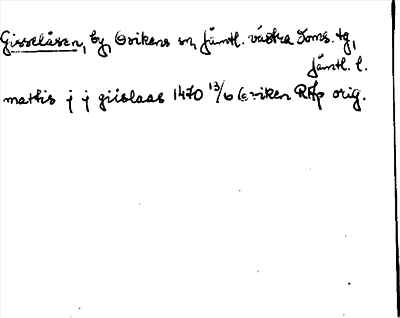 Gisselåsen, by, Ovikens sn, Jämtl. västra doms. tg,
Jämtl. l.
mathis j j giislaas 1470 13/6 Oviken RAp orig.